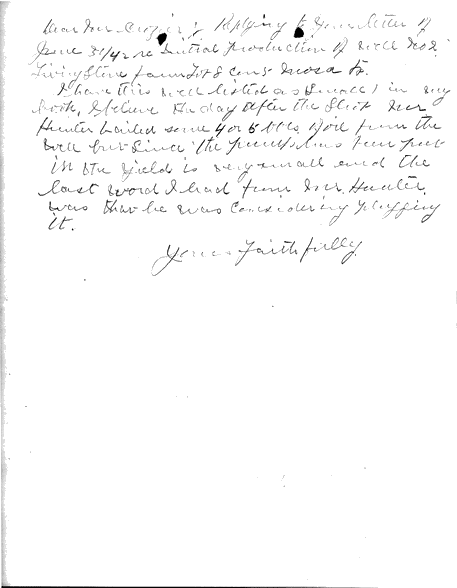 Dear Mr. Crozier: Replying to your letter of
June 3/42 re Initial production of well No 2
Livingstone farm Lot 8 con 5 Mosa Tp.
I have this well listed as (Small) in my
book, I believe the day after the Shot Mr
Hunter bailed some 4 or 5 bbls of oil from the
well but since the pump has been put
in the yield is very small and the
last word I had from Mr. Hunter
was that he was considering plugging
it.
Yours Faithfully